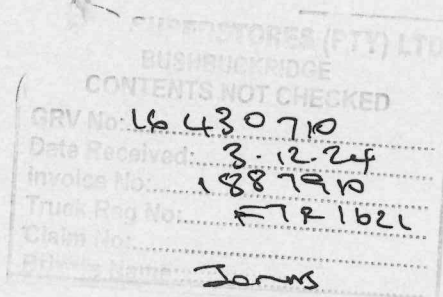 SUPERSTORES (PTY) LTD
BUSHBUCKRIDGE
CONTENTS NOT CHECKED
GRV No: 16430710
Date Received: 3.12.24
Invoice No: 1887910
Truck Reg No: FTR1621
Claim No:
Name: